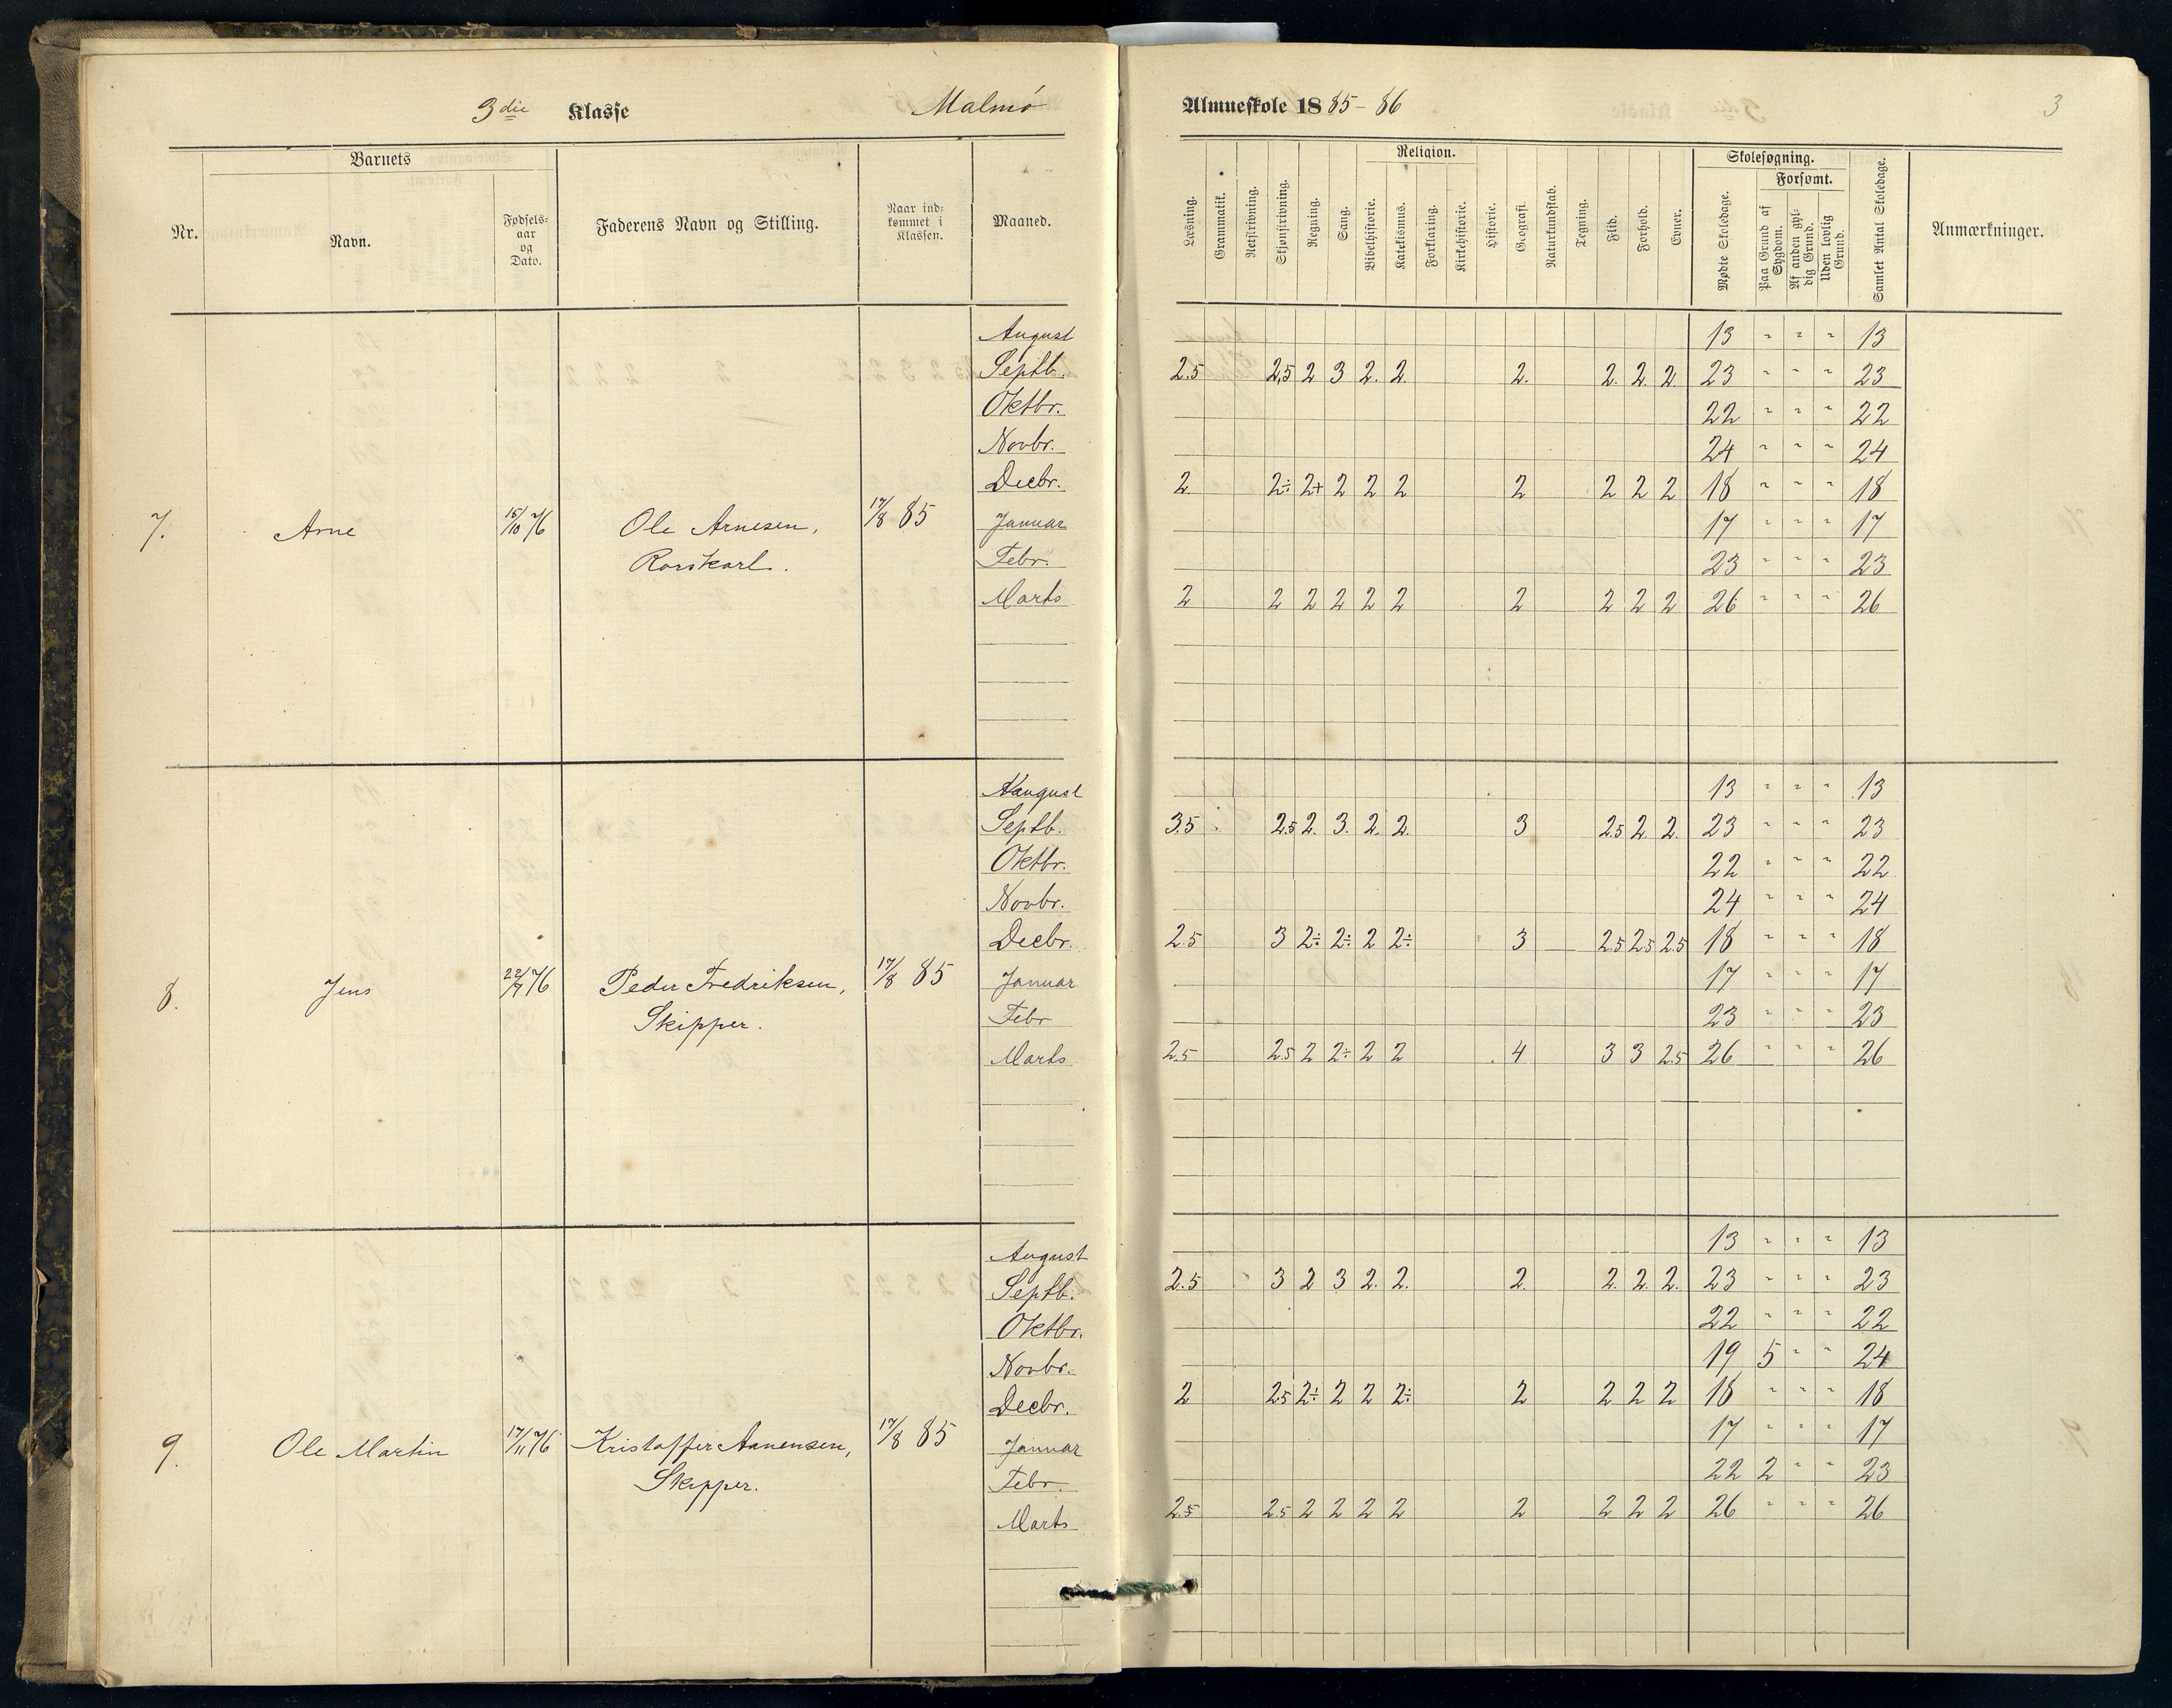 3die Klasse Malmö Almueskole 1885-86 3
Barnets
Nr. Navn. Fødsels-aar og Dato. Faderens Navn og Stilling. Naar indkommet i Klassen. Maaned.
Læsning. Grammatik. Retskrivning. Skjønskrivning. Regning. Sang. Religion. Bibelhistorie. Katekismus. Forklaring. Kirkehistorie. Historie. Geografi. Naturkundskab. Tegning. Flid. Forhold. Evner.
Skolesøgning. Mødte Skoledage. Forsømt. Paa Grund af Sygdom. Af anden gyldig Grund. Uden lovlig Grund. Samlet Antal Skoledage. Anmærkninger.
August 13 " " " 13
Septb. 2.5 2,5 2 3 2. 2. 2. 2. 2. 2 23 " " " 23
Oktbr. 22 " " " 22
Novbr. 24 " " " 24
Decbr. 2 2÷ 2+ 2 2 2 2 2 2 2 18 " " " 18
7. Arne 15/10 76 Ole Arnesen, 17/8 85 Januar 17 " " " 17
Rorskarl. Febr. 23 " " " 23
Marts 2 2 2 2 2 2 2 2 2 2 26 " " " 26
August 13 " " " 13
Septb. 3.5 2.5 2. 3. 2. 2. 3 2.5 2 2. 23 " " " 23
Oktbr. 22 " " " 22
Novbr. 24 " " " 24
Decbr. 2.5 3 2÷ 2÷ 2 2÷ 3 2.5 2.5 2.5 18 " " " 18
8. Jens 22/7 76 Peder Fredriksen, 17/8 85 Januar 17 " " " 17
Skipper. Febr 23 " " " 23
Marts 2.5 2.5 2 2÷ 2 2 4 3 3 2.5 26 " " " 26
August 13 " " " 13
Septb. 2.5 3 2 3 2. 2. 2. 2. 2. 2. 23 " " " 23
Oktbr. 22 " " " 22
Novbr. 19 5 " " 24
Decbr. 2 2.5 2÷ 2 2 2÷ 2 2 2 2 18 " " " 18
9. Ole Martin 17/11 76 Kristoffer Aanensen, 17/8 85 Januar 17 " " " 17
Skipper. Febr. 22 2 " " 23
Marts 2.5 2.5 2 2 2 2 2 2 2 2 26 " " " 26